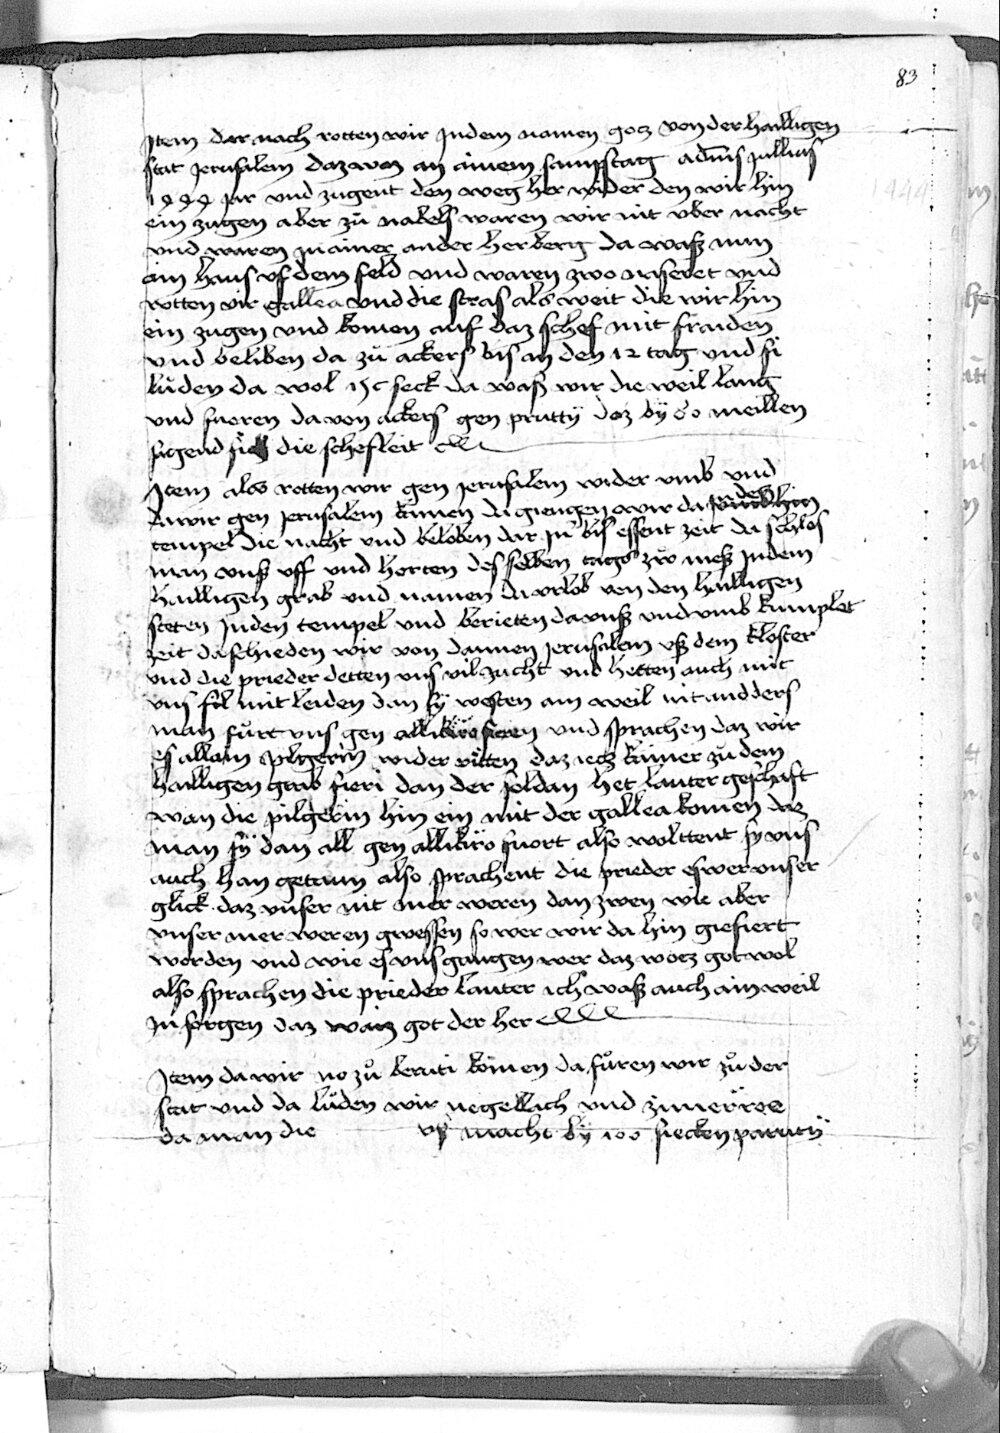 83
Item dar nach rotten wir Jndem namen gocz von der hailligen
stat Jerusalem daz waz an ainem sampstag adims Jullius
1444 jar und zugent den weg her wider den wir hin
ein zugen aber zů nabels waren wir nit uber nacht
und waren jn ainer ander herberg da wasz nun
ain haus uf dem feld und waren zwo
rotten wir gallea und die stras als weit die wir hin
ein zugen und komen auf daz schef mit fraiden
und beliben da zů ackers bis an den 12 tag und si
lůden da wol seck da wasz wir die weil lang
und fueren da von ackers gen prutty daz by 80 meillen
die schefleit
Item also rotten wir gen Jerusalem wider umb und
da wir gen Jerusalem kamen da giengen wir da den
tempel die nacht und beloben dar Jn bis essent zeit da schlos
man unsz uff und horten des selben tags zwo mesz Jndem
hailligen grab und namen da urlob von den hailligen
steten Jnden tempel und berieten da unsz und umb kumplet
zeit da schieden wir von dannen Jerusalem usz dem kloster
und die prieder detten uns vil zucht und hetten auch mit
uns fil mit leiden dan sy westen ain weil nit andders
man furt uns gen allikiro und sprachen daz wir
es allain pilgerin wider ritten daz iecz kainer zů dem
hailligen grab fieri dan der soldan het lauter geschaft
wan die pilgerin hin ein mit der gallea komen daz
man sÿ dan all gen allikiro fuort also wolttent sy uns
auch han getaun also sprachent die prieder es wer unser
glick daz unser nit mer weren dan zwen wie aber
unser mer weren gwessen so wer wir da hin giefiert
worden und wie es uns gangen wer daz wocz got wol
also sprachen die prieder lauter ich wasz auch ain weil
Jn sorgen daz waiz got der her
Item da wir no zů beruti komen da fůren wir zů der
stat und da lůden wir negellach und zimerröre
da man die usz macht by 100 siecken paruty